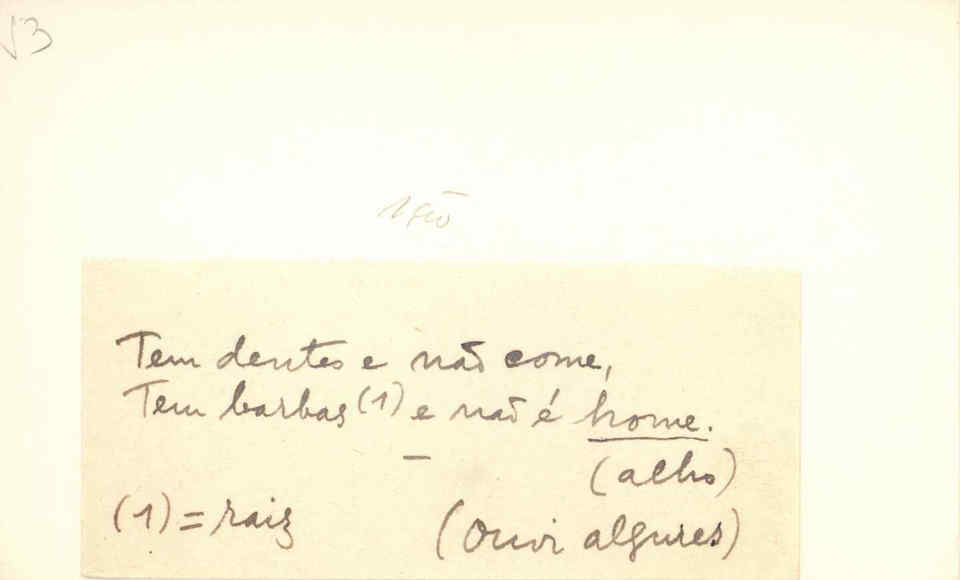 53
Tem dentes e não come,
Tem barbas (1) e não é home.
(alho)
(1) = raiz (Ouvi algures)